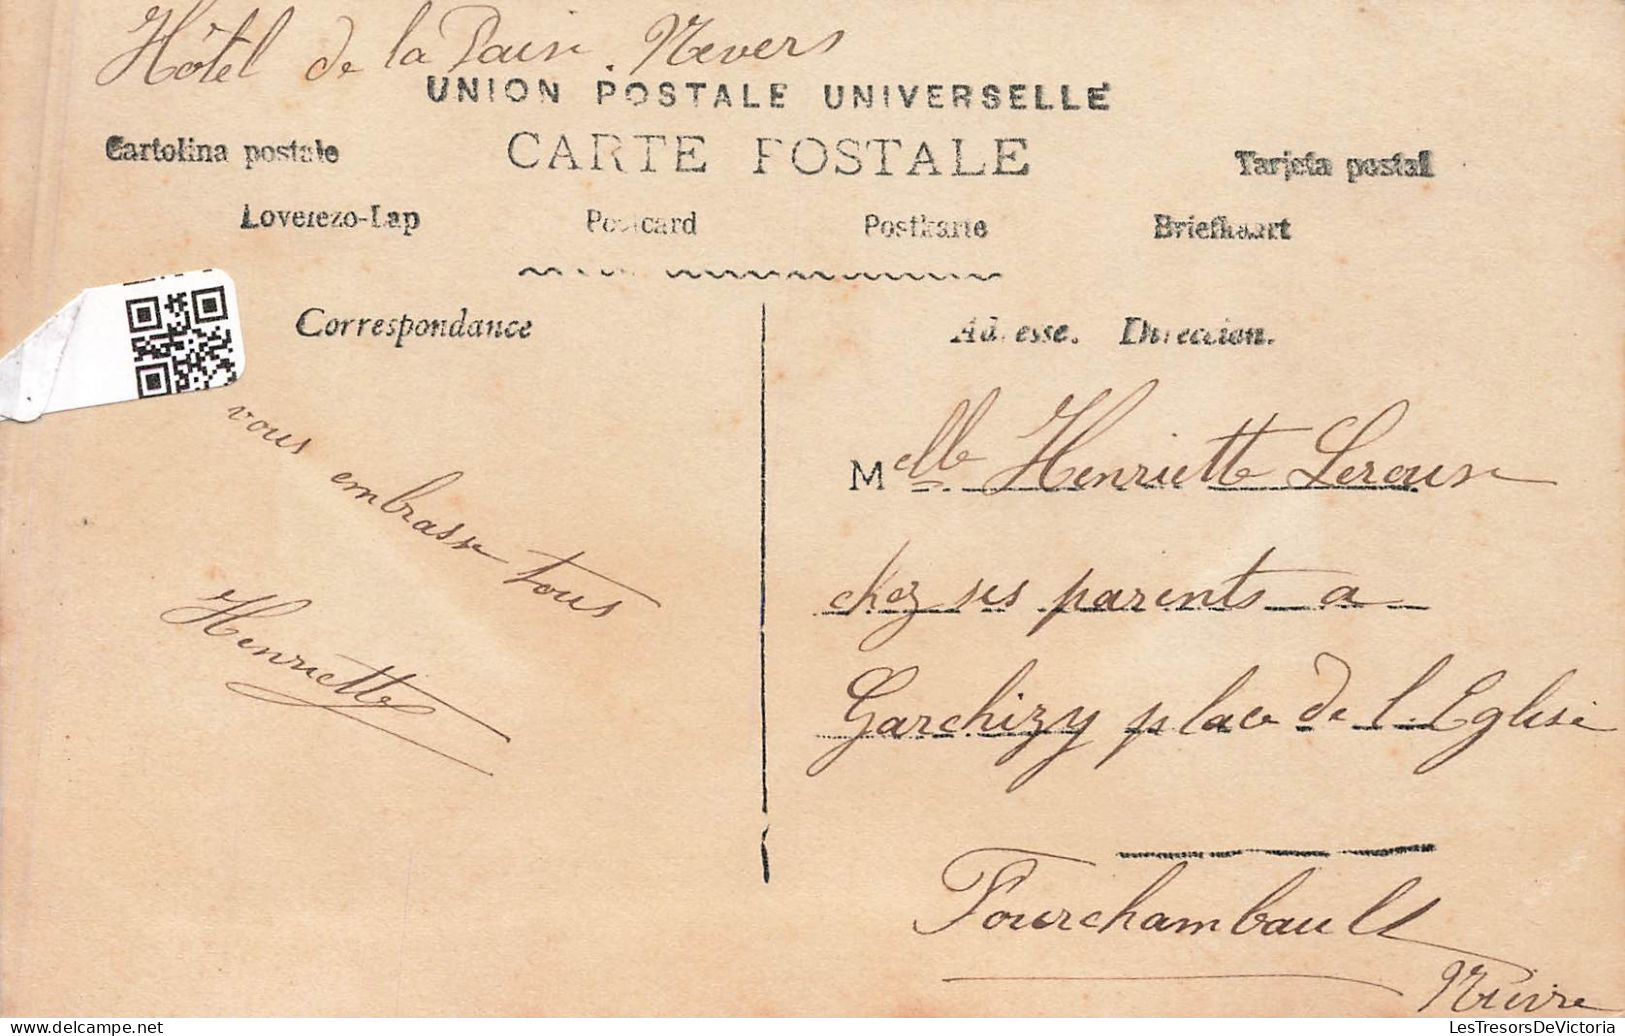 Hôtel de la Paix. Nevers
UNION POSTALE UNIVERSELLE
CARTE POSTALE
Cartolina postale
Tarjeta postal
Leverezo-Lap Postcard Postkarte Briefkaart
Correspondance
Adresse. Direccion.
vous embrasse tous
Henriette
Melle Henriette Leroux
chez ses parents a
Garchizy place de l'Eglise
Fourchambault
Nièvre
LesTresorsDeVictoria